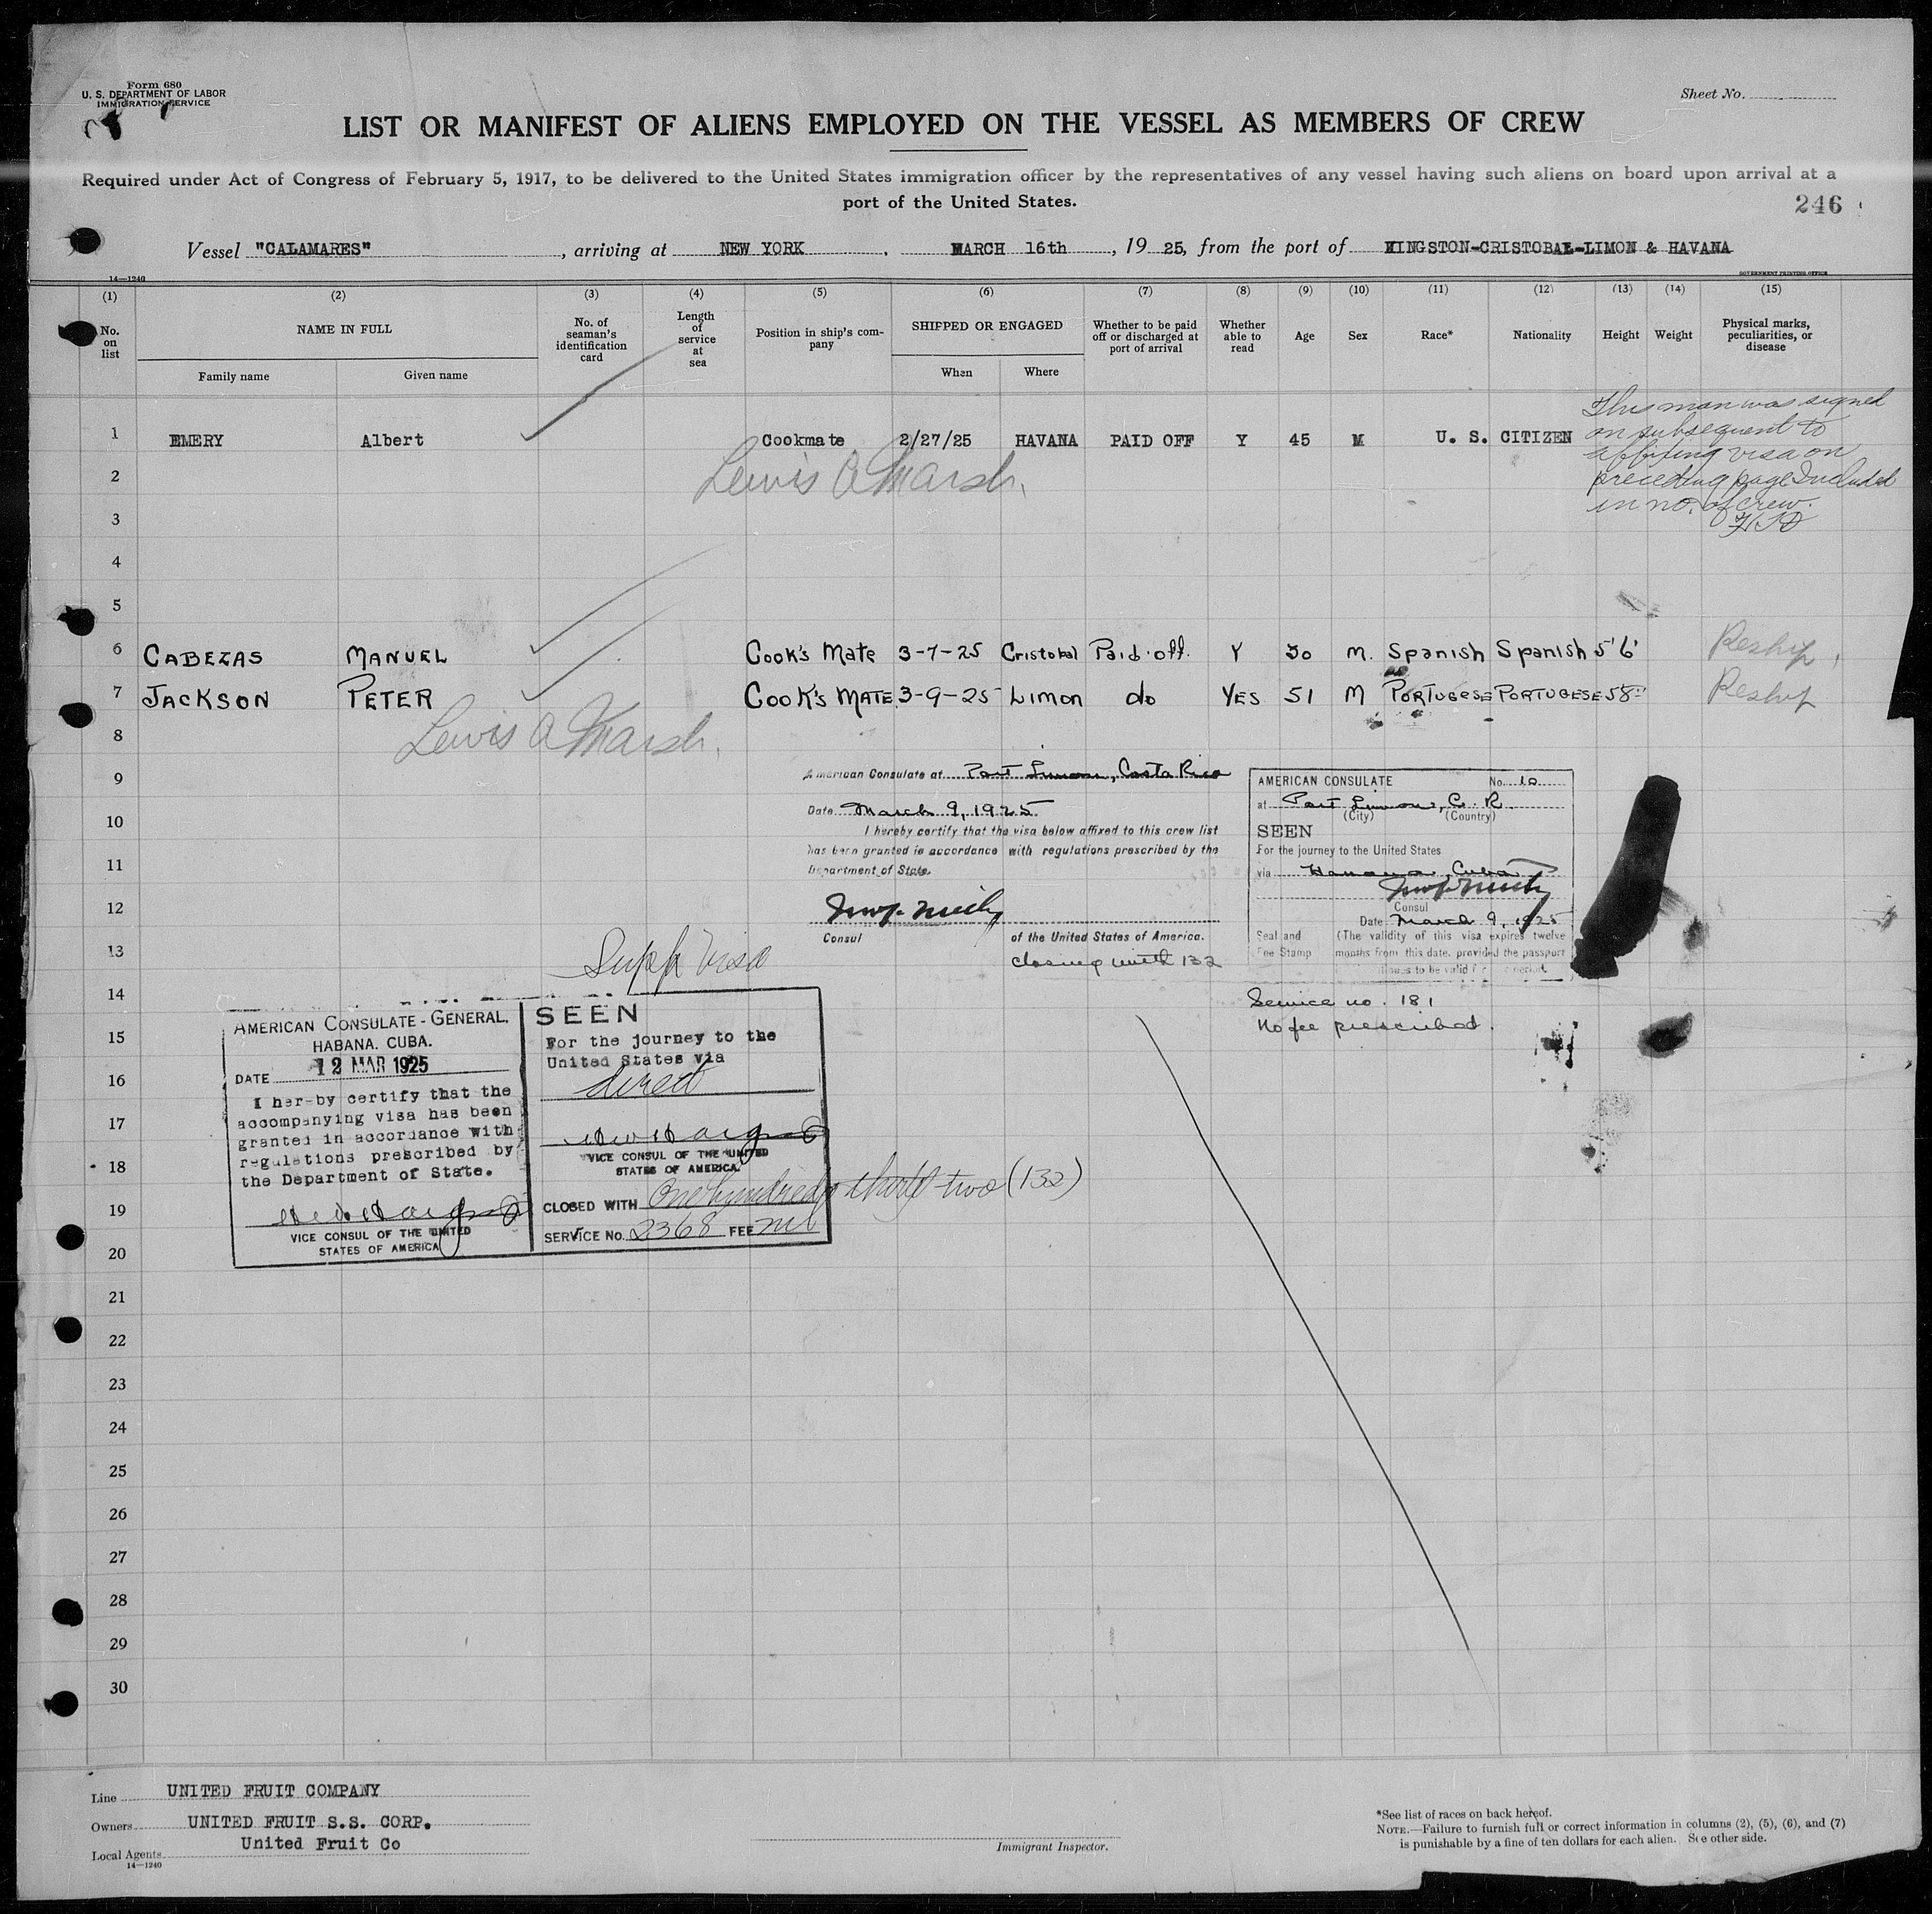 Form 680
U. S. DEPARTMENT OF LABOR
IMMIGRATION SERVICE
Sheet No.
LIST OR MANIFEST OF ALIENS EMPLOYED ON THE VESSEL AS MEMBERS OF CREW
Required under Act of Congress of February 5, 1917, to be delivered to the United States immigration officer by the representatives of any vessel having such aliens on board upon arrival at a
port of the United States.
246
Vessel "CALAMARES", arriving at NEW YORK, MARCH 16th, 19 25, from the port of KINGSTON-CRISTOBAL-LIMON & HAVANA
14—1240
GOVERNMENT PRINTING OFFICE
(1) (2) (3) (4) (5) (6) (7) (8) (9) (10) (11) (12) (13) (14) (15)
No. on list
NAME IN FULL
Family name
Given name
No. of seaman's identification card
Length of service at sea
Position in ship's company
SHIPPED OR ENGAGED
When
Where
Whether to be paid off or discharged at port of arrival
Whether able to read
Age
Sex
Race*
Nationality
Height
Weight
Physical marks, peculiarities, or disease
1 EMERY Albert Cookmate 2/27/25 HAVANA PAID OFF Y 45 M U. S. CITIZEN
This man was signed
on subsequent to
affixing visa on
preceding page Included
in no. of crew.
2
Lewis A Marsh.
3
4
5
6 CABEZAS MANUEL Cook's Mate 3-7-25 Cristobal Paid off. Y 30 M. Spanish Spanish 5'6' Reship
7 JACKSON PETER COOK'S MATE 3-9-25 LIMON do YES 51 M PORTUGESE PORTUGESE 58" Reship
Lewis A Marsh.
8
9
10
11
12
13
14
15
16
17
18
19
20
21
22
23
24
25
26
27
28
29
30
American Consulate at Port Limon, Costa Rica
Date March 9, 1925
I hereby certify that the visa below affixed to this crew list
has been granted in accordance with regulations prescribed by the
Department of State.
Consul of the United States of America.
closing with 132
AMERICAN CONSULATE No. 10
at Port Limon, C. R.
(City) (Country)
SEEN
For the journey to the United States
via Havana, Cuba
Consul
Date March 9, 1925
Seal and Fee Stamp
(The validity of this visa expires twelve
months from this date, provided the passport
to be valid
Service no. 181
No fee prescribed.
Supp Visa
AMERICAN CONSULATE-GENERAL,
HABANA. CUBA.
DATE 12 MAR 1925
I hereby certify that the
accompanying visa has been
granted in accordance with
regulations prescribed by
the Department of State.
VICE CONSUL OF THE UNITED
STATES OF AMERICA
SEEN
For the journey to the
United States via
direct
VICE CONSUL OF THE UNITED
STATES OF AMERICA.
CLOSED WITH One hundred thirty two (132)
SERVICE No. 2368 FEE nil
Line UNITED FRUIT COMPANY
Owners UNITED FRUIT S.S. CORP.
Local Agents United Fruit Co
14—1240
Immigrant Inspector.
*See list of races on back hereof.
NOTE.—Failure to furnish full or correct information in columns (2), (5), (6), and (7)
is punishable by a fine of ten dollars for each alien. See other side.